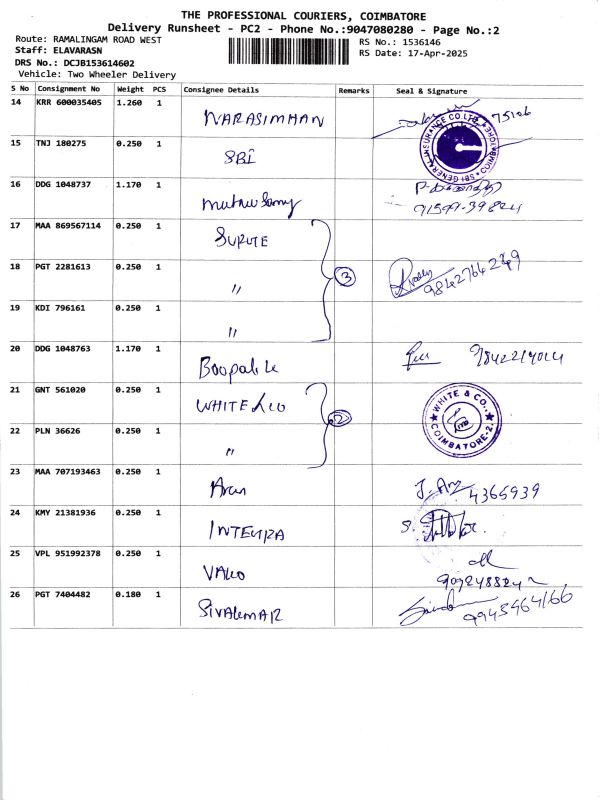 THE PROFESSIONAL COURIERS, COIMBATORE
Delivery Runsheet - PC2 - Phone No.:9047080280 - Page No.:2
Route: RAMALINGAM ROAD WEST
RS No.: 1536146
Staff: ELAVARASN
RS Date: 17-Apr-2025
DRS No.: DCJB153614602
Vehicle: Two Wheeler Delivery
S No Consignment No Weight PCS Consignee Details Remarks Seal & Signature
14 KRR 600035405 1.260 1 NARASIMHAN
15 TNJ 180275 0.250 1 SBI
SBI GENERAL INSURANCE CO LTD
16 DDG 1048737 1.170 1
17 MAA 869567114 0.250 1
18 PGT 2281613 0.250 1 " 3
19 KDI 796161 0.250 1 "
20 DDG 1048763 1.170 1 9842214014
21 GNT 561020 0.250 1 WHITE & CO 2
WHITE & CO.,
COIMBATORE-2.
22 PLN 36626 0.250 1 "
23 MAA 707193463 0.250 1 Arun 4365939
24 KMY 21381936 0.250 1
25 VPL 951992378 0.250 1
26 PGT 7404482 0.180 1 9943464166